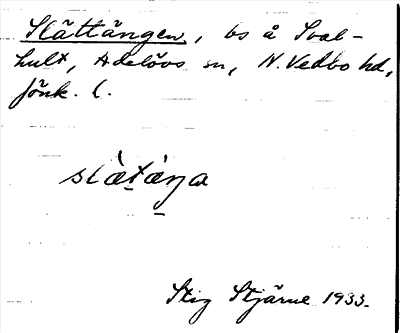 Slättängen, bs å Sval-
hult, Adelövs sn, N. Vedbo hd,
Jönk. l.
slàt̠àŋ̠a
Stig Stjärne 1933.